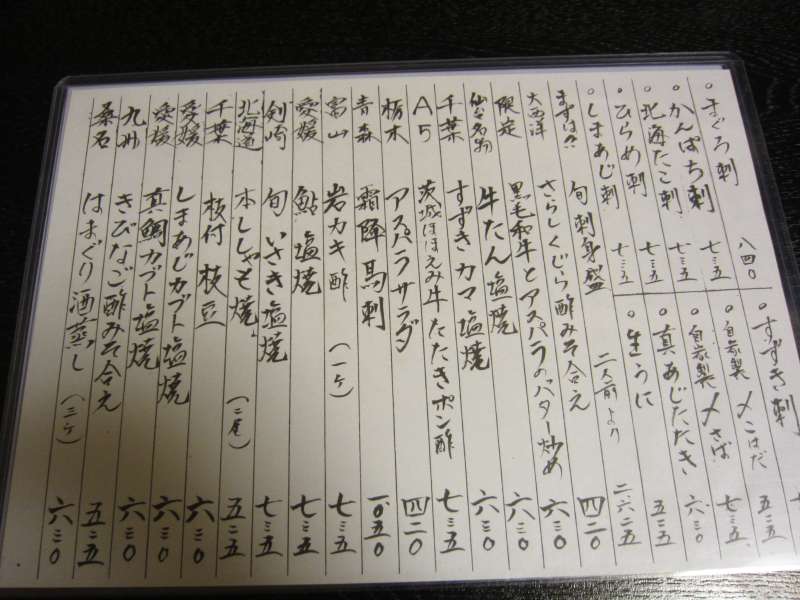 まぐろ刺 八四〇
かんぱち刺 七三五
北海たこ刺 七三五
ひらめ刺 七三五
しまあじ刺 七三五
すずき刺 七
自家製 〆こはだ 五二五
自家製 〆さば 七三五
真あじたたき 六三〇
生うに 五二五
まずは!! 旬刺身盛 二人前より 二六二五
大西洋 さらしくじら酢みそ合え 四二〇
限定 黒毛和牛とアスパラのバター炒め 六三〇
仙台名物 牛たん塩焼 六三〇
千葉 すずきカマ塩焼 六三〇
A5 茨城ほほえみ牛たたきポン酢 七三五
栃木 アスパラサラダ 四二〇
青森 霜降馬刺 一〇五〇
富山 岩カキ酢 (一ケ) 七三五
愛媛 鮎塩焼 七三五
剣崎 旬いさき塩焼 七三五
北海道 本ししゃも焼 (二尾) 五二五
千葉 枝付枝豆 六三〇
愛媛 しまあじカブト塩焼 六三〇
愛媛 真鯛カブト塩焼 六三〇
九州 きびなご酢みそ合え 五二五
桑名 はまぐり酒蒸し (三ケ) 六三〇